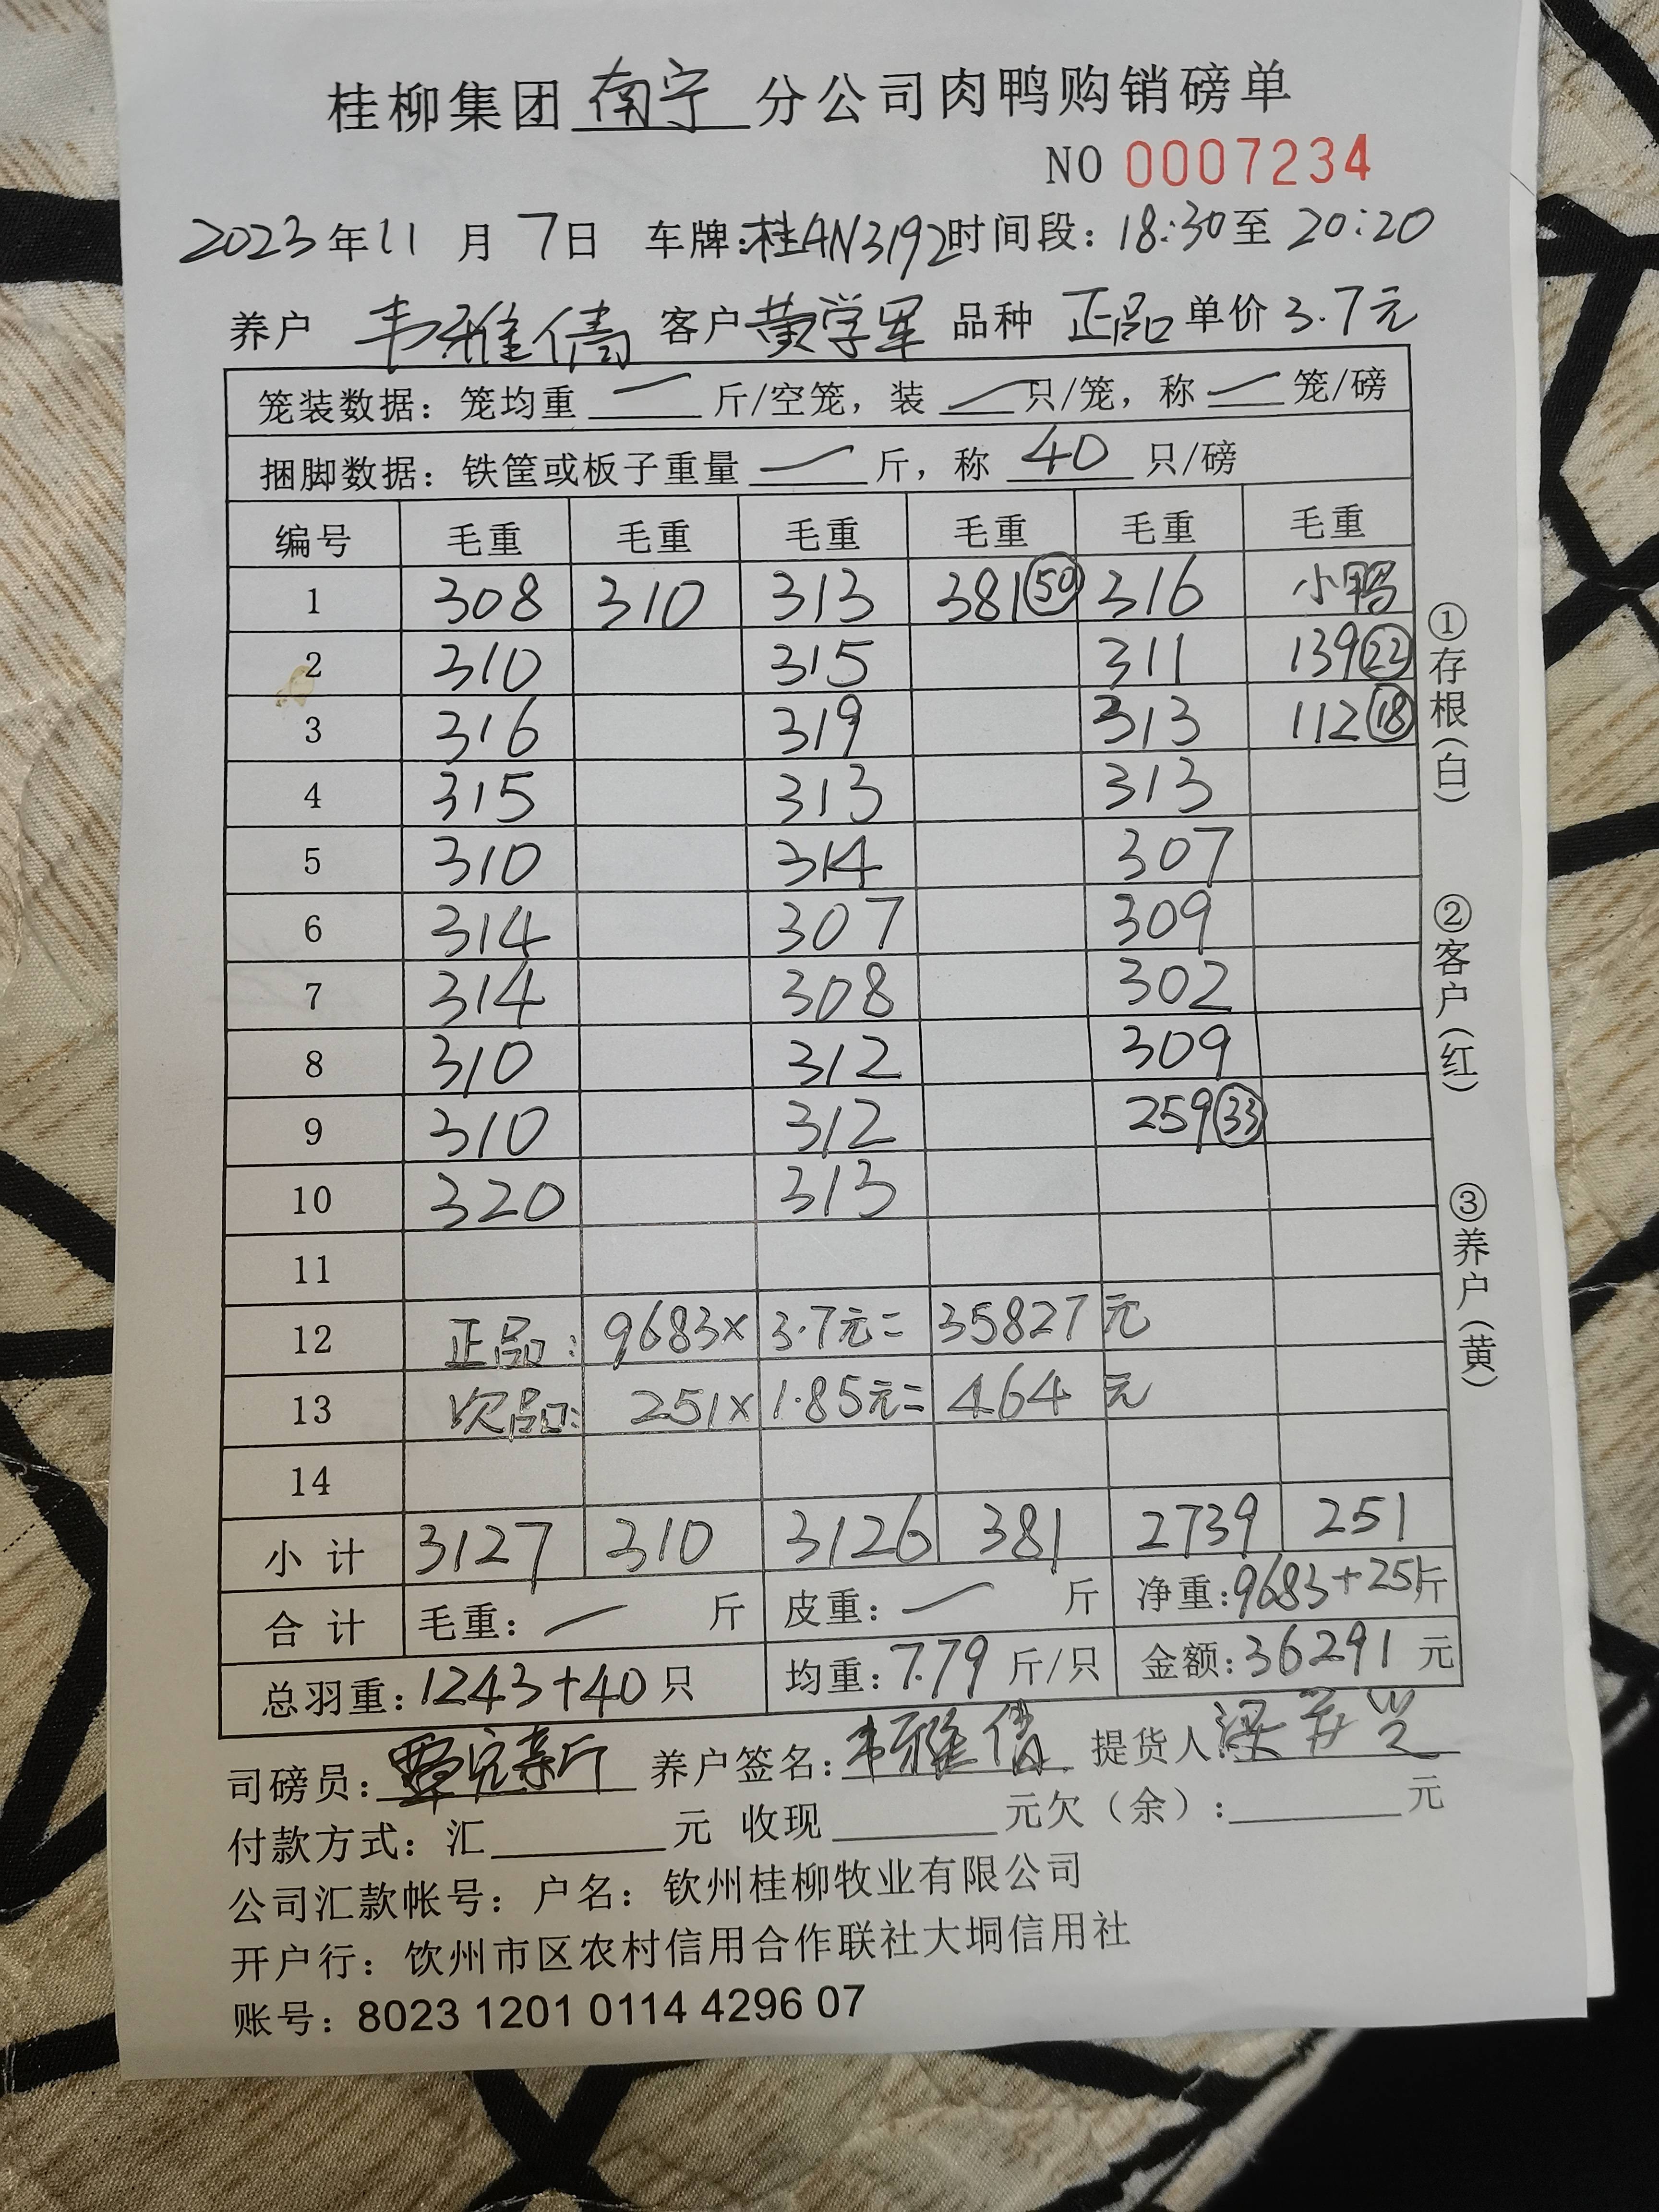 桂柳集团南宁分公司肉鸭购销磅单
NO 0007234
2023年11月7日 车牌:桂AN3192时间段：18:30至20:20
养户 韦雅倩 客户黄学军 品种 正品 单价3.7元
笼装数据：笼均重 — 斤/空笼，装 — 只/笼，称 — 笼/磅
捆脚数据：铁筐或板子重量 — 斤，称 40 只/磅
编号 毛重 毛重 毛重 毛重 毛重 毛重
1 308 310 313 381㊿ 316 小鸭
2 310 315 311 139㉒
3 316 319 313 112⑱
4 315 313 313
5 310 314 307
6 314 307 309
7 314 308 302
8 310 312 309
9 310 312 259㉝
10 320 313
11
12 正品: 9683× 3.7元= 35827元
13 次品: 251× 1.85元= 464元
14
小计 3127 310 3126 381 2739 251
合计 毛重：— 斤 皮重：— 斤 净重:9683+251斤
总羽重:1243+40只 均重:7.79斤/只 金额:36291元
司磅员: 养户签名:韦雅倩 提货人
付款方式：汇 元 收现 元欠（余）: 元
公司汇款帐号：户名：钦州桂柳牧业有限公司
开户行：钦州市区农村信用合作联社大垌信用社
账号：8023 1201 0114 4296 07
①存根(白)
②客户(红)
③养户(黄)